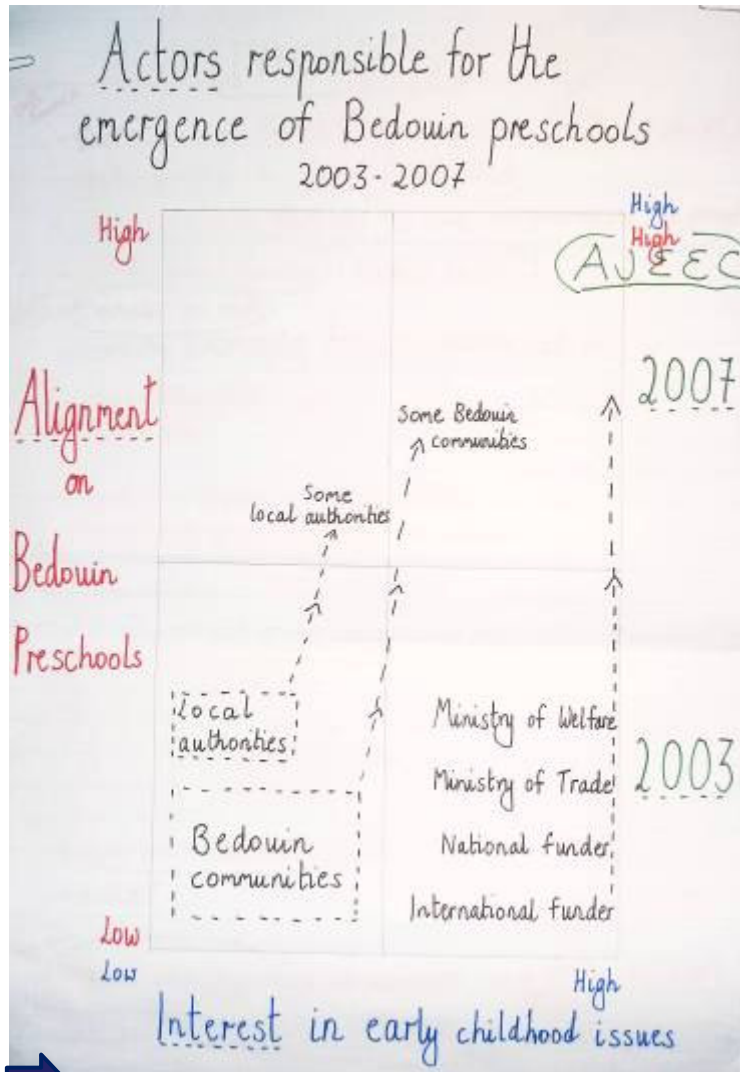 Actors responsible for the
emergence of Bedouin preschools
2003-2007
High
High
High
AJEEC
2007
Alignment
on
Bedouin
Preschools
Some Bedouin
communities
Some
local authorities
Local
authorities
Bedouin
communities
Ministry of Welfare
Ministry of Trade
National funder
International funder
2003
Low
Low
High
Interest in early childhood issues